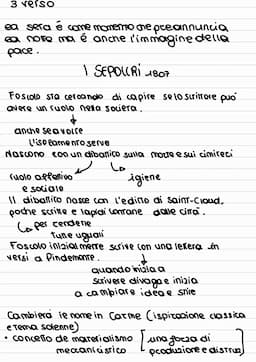 3 verso
la sera è come momento che preannuncia
la notte ma è anche l'immagine della
pace.
I SEPOLCRI 1807
Foscolo sta cercando di capire se lo scrittore può
avere un ruolo nella società.
anche se a volte
l'isolamento serve
Nascono con un dibattito sulla morte e sui cimiteri
ruolo affettivo
e sociale
igiene
Il dibattito nasce con l'editto di Saint-Cloud,
poiché scritte e lapidi lontane dalle città.
per renderle
tutte uguali
Foscolo inizialmente scrive con una lettera in
versi a Pindemonte.
quando inizia a
scrivere divaga e inizia
a cambiare idea e stile
Cambierà il nome in Carme (ispirazione classica
e tema solenne)
• concetto di materialismo
meccanicistico
una forza di
produzione e distruz